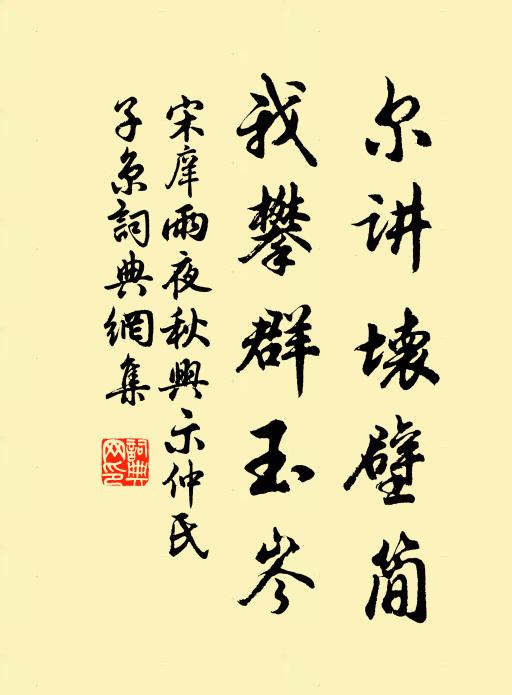 尔讲壊壁简
我攀群玉岑
宋庠雨夜秋興示仲氏
子京詞典網集
詞典
网印